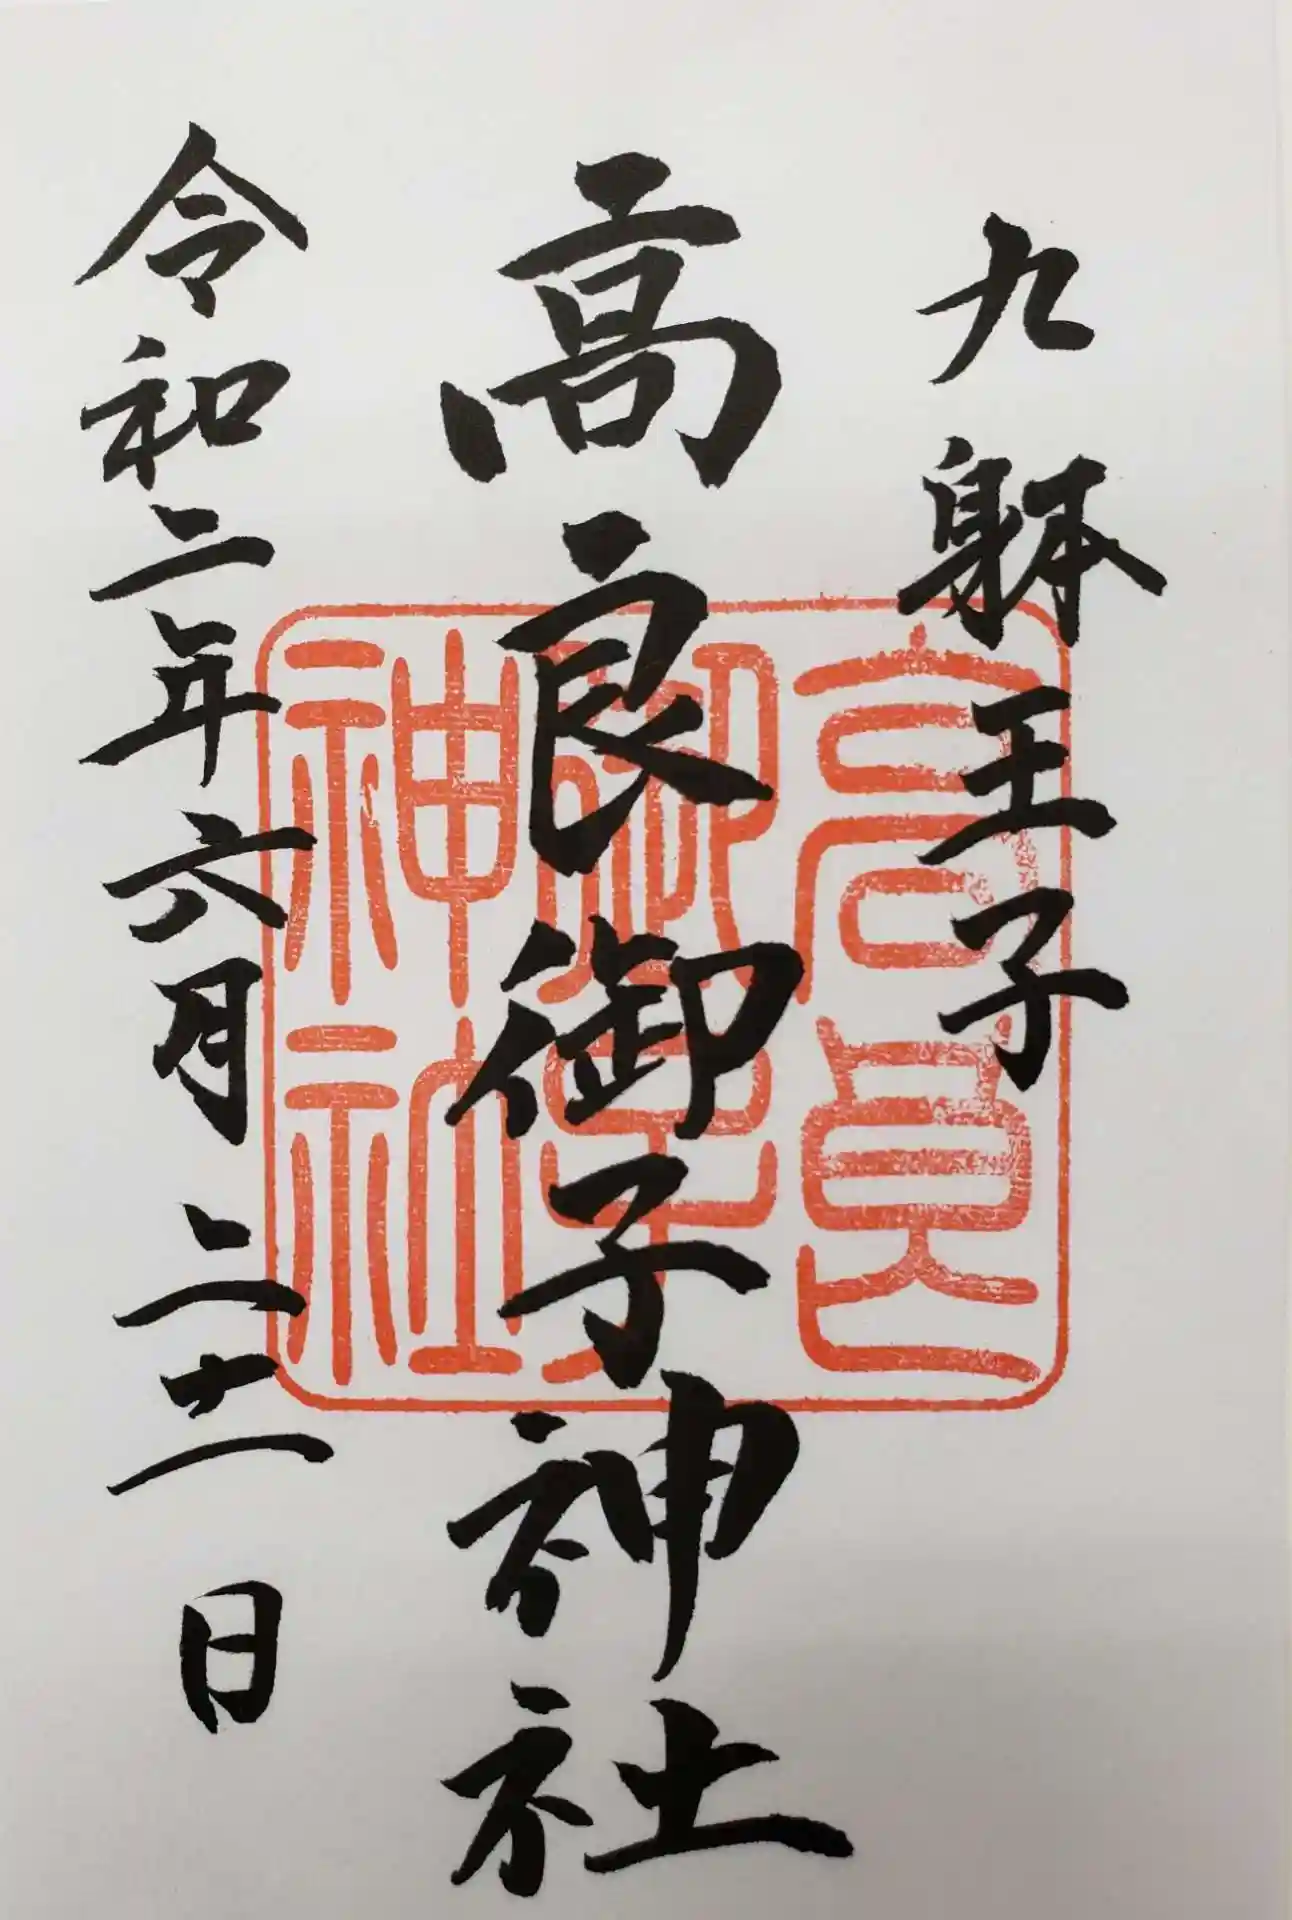 九躰王子
高良御子神社
令和二年六月二十二日
高良
御子
神社